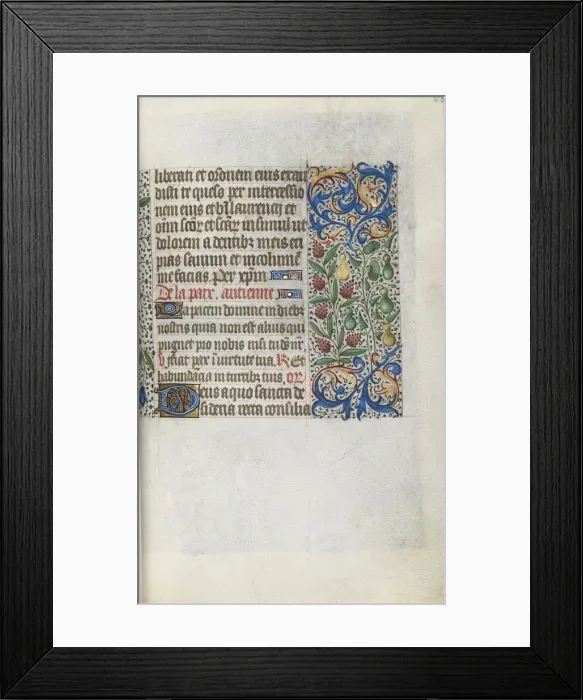 liberati et orōnem eius exau
disti te queso per intercessio
nem eius et bī laurencij et
oīm scōr et scār in simul ut
dolorem a dentibz meis eri
pias sanum et incolume
me facias. Per xpm
De la paix. antienne.
Da pacem domine in diebz
nostris quia non est alius qui
pugnet pro nobis nisi tu
V fiat pax ī virtute tua. R Et
habundacia in turribz tuis. OR
Deus a quo sancta de
sideria recta consilia